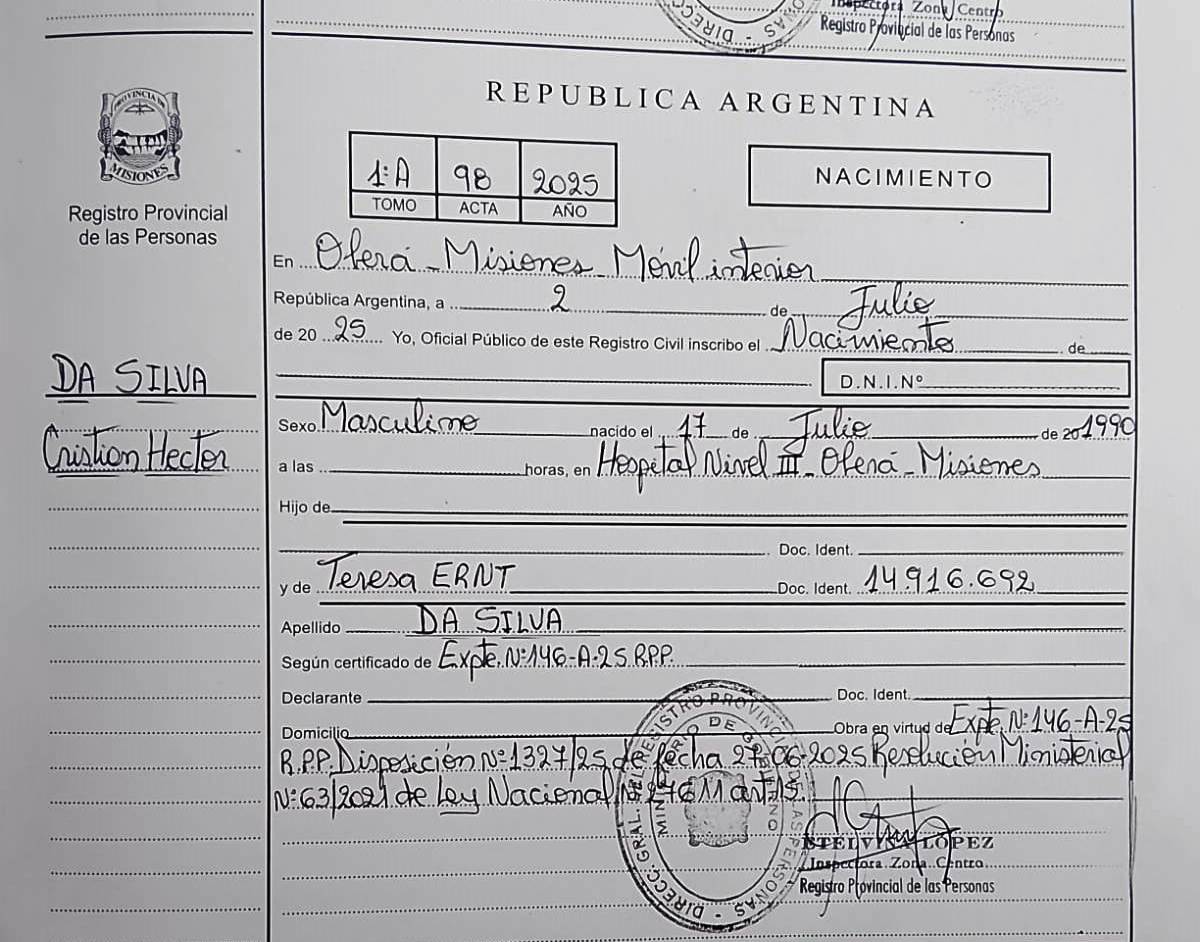 Inspectora Zona Centro
Registro Provincial de las Personas
DIRECC
NAS
REPUBLICA ARGENTINA
PROVINCIA DE
MISIONES
Registro Provincial
de las Personas
1ºA 98 2025
TOMO ACTA AÑO
NACIMIENTO
En Oberá - Misiones - Móvil interior
República Argentina, a 2 de Julio
de 20 25 Yo, Oficial Público de este Registro Civil inscribo el Nacimiento de
D.N.I.Nº
DA SILVA
Cristian Hector
Sexo Masculino nacido el 17 de Julio de 20 1990
a las horas, en Hospital Nivel III - Oberá - Misiones
Hijo de
Doc. Ident.
y de Teresa ERNT Doc. Ident. 14.916.692
Apellido DA SILVA
Según certificado de Expte. Nº146-A-25 R.P.P.
Declarante Doc. Ident.
Domicilio Obra en virtud de Expte. Nº146-A-25
R.P.P. Disposición Nº1327/25 de fecha 27-06-2025 Resolución Ministerial
Nº63/2021 de Ley Nacional Nº27611 art 15.
DIRECC. GRAL. DEL REGISTRO PROVINCIAL DE LAS PERSONAS
MINISTERIO DE GOBIERNO
ESTELVINA LÓPEZ
Inspectora Zona Centro
Registro Provincial de las Personas